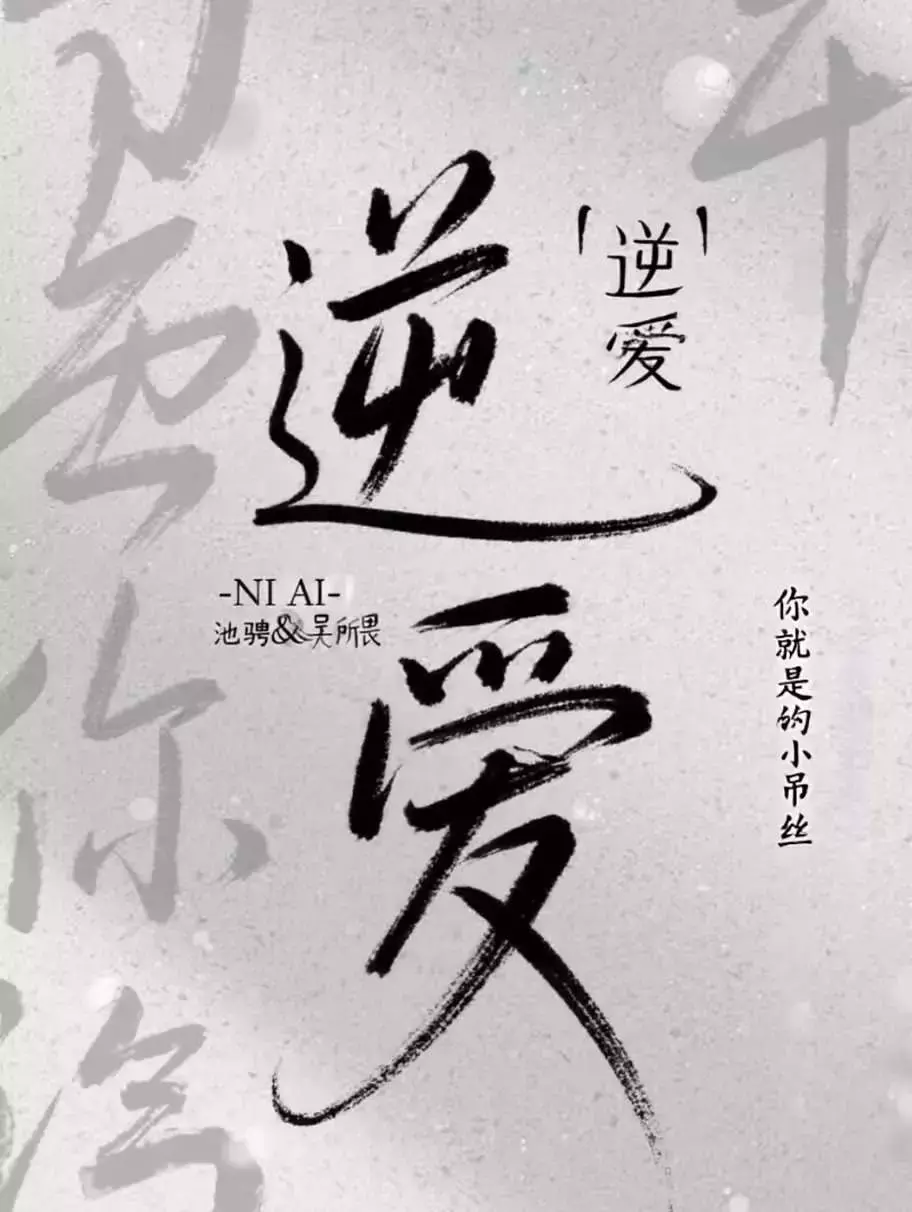 逆爱
「逆爱」
-NI AI-
池骋&吴所畏
你就是的小吊丝
你